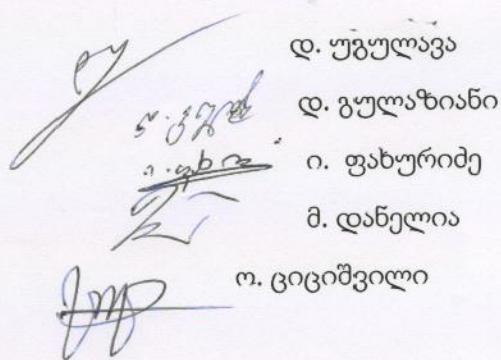 დ. უგულავა
დ. გულაზიანი
ი. ფახურიძე
მ. დანელია
ო. ციციშვილი